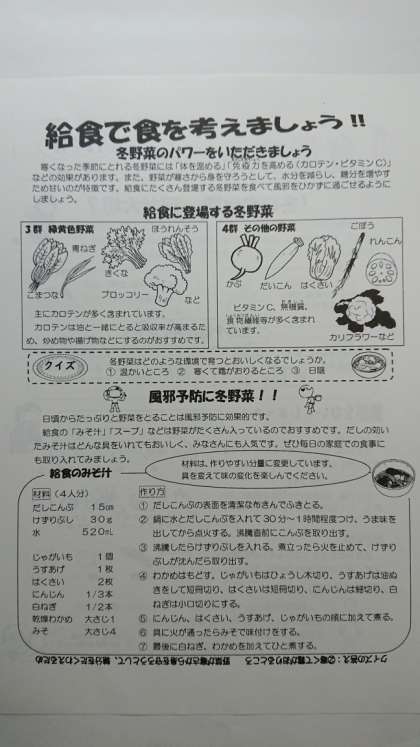 給食で食を考えましょう!!
冬野菜のパワーをいただきましょう
寒くなった季節にとれる冬野菜には「体を温める」「免疫力を高める(カロテン・ビタミンC)」
などの効果があります。また、野菜が寒さから身を守ろうとして、水分を減らし、糖分を増やす
ため甘いのが特徴です。給食にたくさん登場する冬野菜を食べて風邪をひかずに過ごせるように
しましょう。
給食に登場する冬野菜
3群 緑黄色野菜
ほうれんそう
青ねぎ
きくな
こまつな
ブロッコリー
など
主にカロテンが多く含まれています。
カロテンは油と一緒にとると吸収率が高まるた
め、炒め物や揚げ物などにするのがおすすめです。
4群 その他の野菜
ごぼう
れんこん
かぶ
だいこん
はくさい
ビタミンC、無機質、
食物繊維等が多く含まれ
ています。
カリフラワーなど
クイズ
冬野菜はどのような環境で育つとおいしくなるでしょうか。
① 温かいところ ② 寒くて霜がおりるところ ③ 日陰
風邪予防に冬野菜!!
日頃からたっぷりと野菜をとることは風邪予防に効果的です。
給食の「みそ汁」「スープ」などは野菜がたくさん入っているのでおすすめです。だしの効い
たみそ汁はどんな具をいれてもおいしく、みなさんにも人気です。ぜひ毎日の家庭での食事に
も取り入れてみましょう。
給食のみそ汁
材料は、作りやすい分量に変更しています。
具を変えて味の変化を楽しんでください。
材料(4人分)
だしこんぶ 15cm
けずりぶし 30g
水 520mL
じゃがいも 1個
うすあげ 1枚
はくさい 2枚
にんじん 1/3本
白ねぎ 1/2本
乾燥わかめ 大さじ1
みそ 大さじ4
作り方
① だしこんぶの表面を清潔な布きんでふきとる。
② 鍋に水とだしこんぶを入れて30分~1時間程度つけ、うま味を
出してから点火する。沸騰直前にこんぶを取り出す。
③ 沸騰したらけずりぶしを入れる。煮立ったら火を止めて、けずり
ぶしが沈んだら取り出す。
④ わかめはもどす。じゃがいもはひょうし木切り、うすあげは油ぬ
きをして短冊切り、はくさいは短冊切り、にんじんは細切り、白
ねぎは小口切りにする。
⑤ にんじん、はくさい、うすあげ、じゃがいもの順に加えて煮る。
⑥ 具に火が通ったらみそで味付けをする。
⑦ 最後に白ねぎ、わかめを加えてひと煮する。
クイズの答え:②寒くて霜がおりるところ 野菜が寒さから身を守ろうとして、糖分をたくわえるため